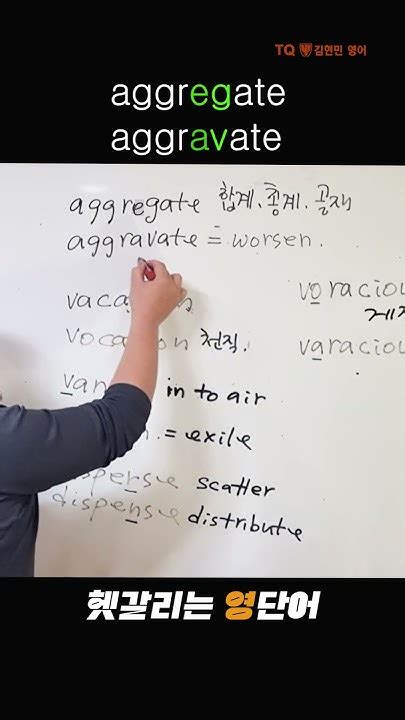 TQ 김현민 영어
aggregate
aggravate
aggregate 합계、총계、골재
aggravate = worsen.
vaca n
voca on 천직.
van in to air
= exile
perse scatter
dispense distribute
voraciou
varaciou
헷갈리는 영단어